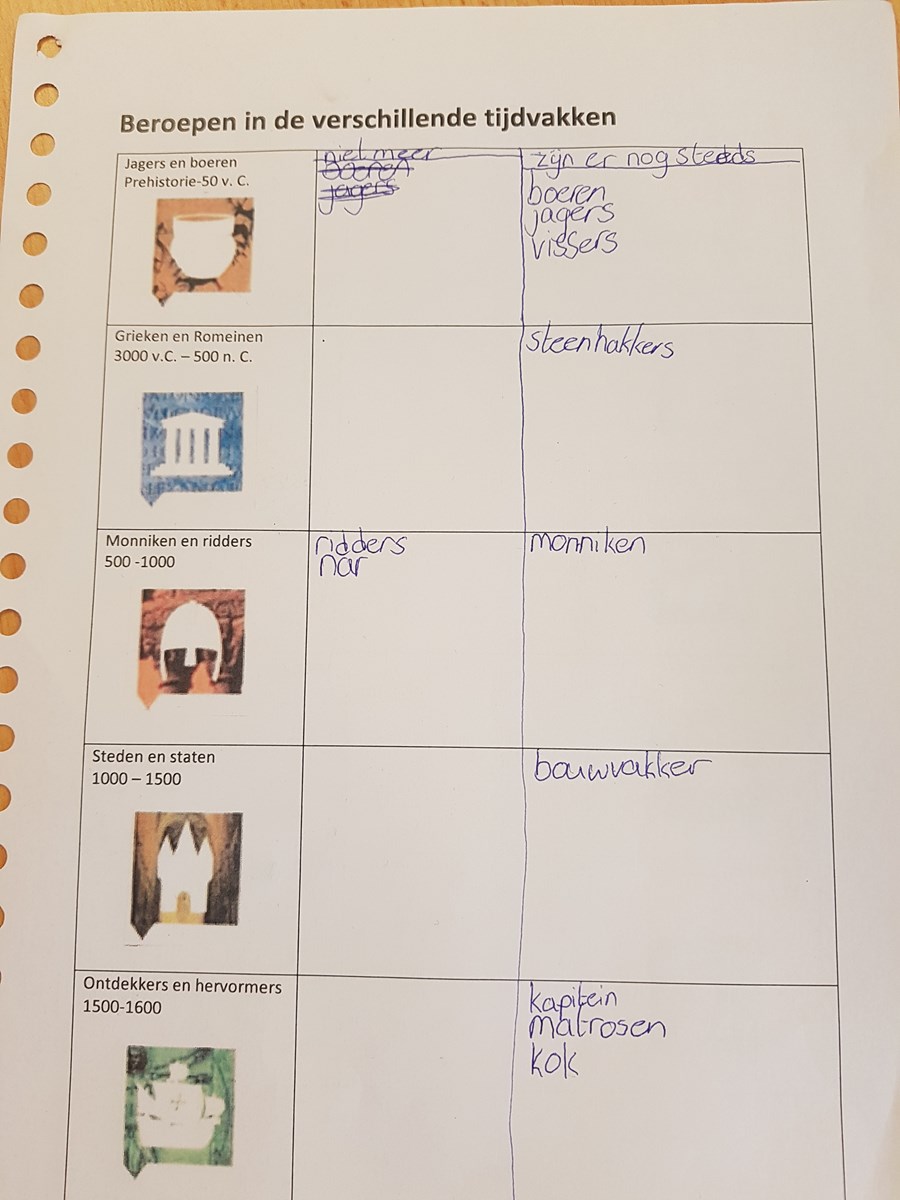 Beroepen in de verschillende tijdvakken
Jagers en boeren
Prehistorie-50 v. C.
niet meer
boeren
jagers
zijn er nog steeds
boeren
jagers
vissers
Grieken en Romeinen
3000 v.C. – 500 n. C.
steenhakkers
Monniken en ridders
500 -1000
ridders
nar
monniken
Steden en staten
1000 – 1500
bouwvakker
Ontdekkers en hervormers
1500-1600
kapitein
matrosen
kok